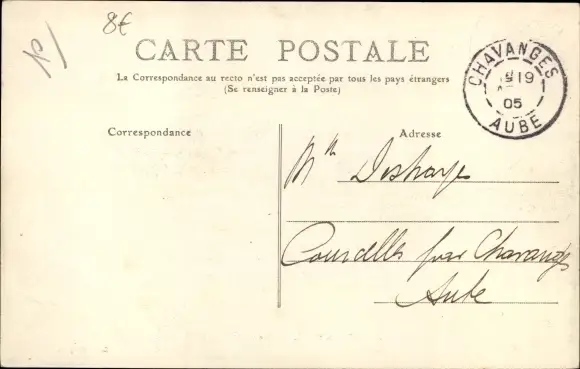 8€
CARTE POSTALE
La Correspondance au recto n'est pas acceptée par tous les pays étrangers
(Se renseigner à la Poste)
CHAVANGES
19
05
AUBE
Correspondance
Adresse
Mlle Deshayes
Courcelles par Chavanges
Aube